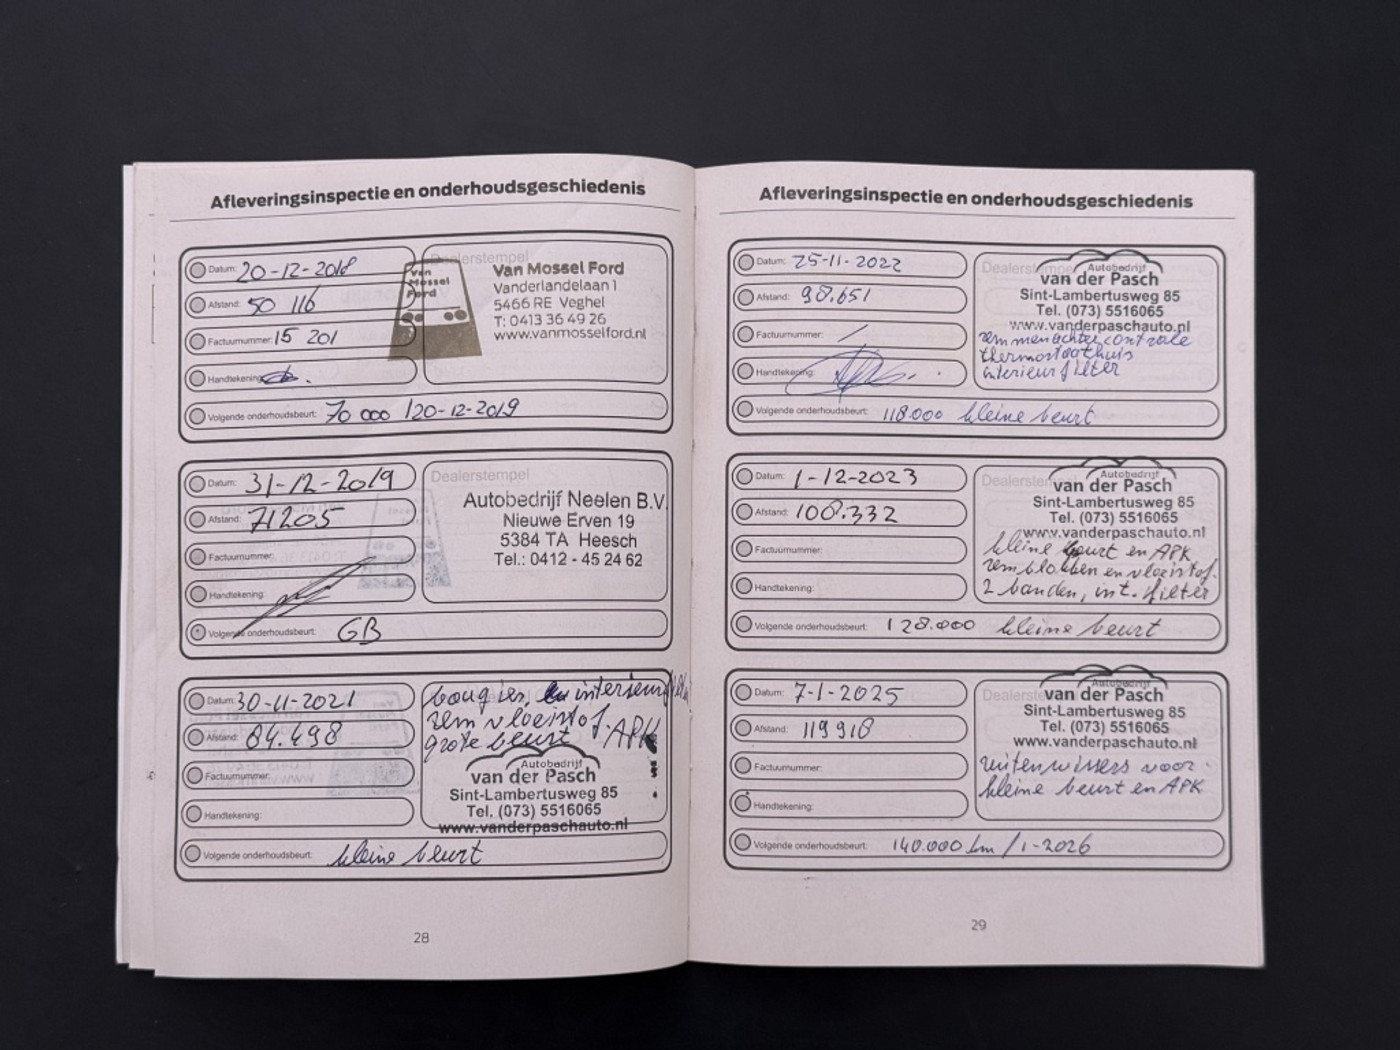 Afleveringsinspectie en onderhoudsgeschiedenis
Datum: 20-12-2018
Afstand: 50 116
Factuurnummer: 15 201
Handtekening:
Volgende onderhoudsbeurt: 70 000 / 20-12-2019
Dealerstempel
Van Mossel Ford
Van Mossel Ford
Vanderlandelaan 1
5466 RE Veghel
T: 0413 36 49 26
www.vanmosselford.nl
Datum: 31-12-2019
Afstand: 71205
Factuurnummer:
Handtekening:
Volgende onderhoudsbeurt: GB
Dealerstempel
Autobedrijf Neelen B.V.
Nieuwe Erven 19
5384 TA Heesch
Tel.: 0412 - 45 24 62
Datum: 30-11-2021
Afstand: 84.498
Factuurnummer:
Handtekening:
Volgende onderhoudsbeurt: kleine beurt
bougies, interieur
rem vloeistof
grote beurt APK
Autobedrijf
van der Pasch
Sint-Lambertusweg 85
Tel. (073) 5516065
www.vanderpaschauto.nl
28
Afleveringsinspectie en onderhoudsgeschiedenis
Datum: 25-11-2022
Afstand: 98.651
Factuurnummer: /
Handtekening:
Volgende onderhoudsbeurt: 118.000 kleine beurt
Dealerstempel
Autobedrijf
van der Pasch
Sint-Lambertusweg 85
Tel. (073) 5516065
www.vanderpaschauto.nl
remmen achter controle
thermostaathuis
interieurfilter
Datum: 1-12-2023
Afstand: 108.332
Factuurnummer:
Handtekening:
Volgende onderhoudsbeurt: 128.000 kleine beurt
Dealerstempel
Autobedrijf
van der Pasch
Sint-Lambertusweg 85
Tel. (073) 5516065
www.vanderpaschauto.nl
kleine beurt en APK
remblokken en vloeistof.
2 banden, int. filter
Datum: 7-1-2025
Afstand: 119910
Factuurnummer:
Handtekening:
Volgende onderhoudsbeurt: 140.000 km / 1-2026
Dealerstempel
Autobedrijf
van der Pasch
Sint-Lambertusweg 85
Tel. (073) 5516065
www.vanderpaschauto.nl
ruitenwissers voor
kleine beurt en APK
29